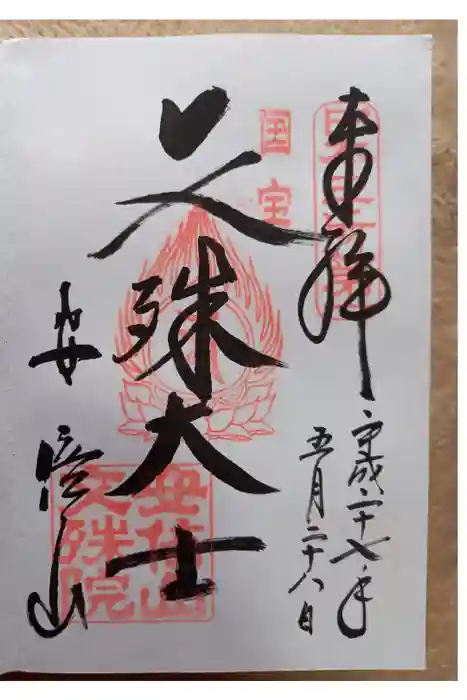 奉拝
平成二十七年
五月二十八日
国宝
文殊大士
安倍山
安倍山
文殊院